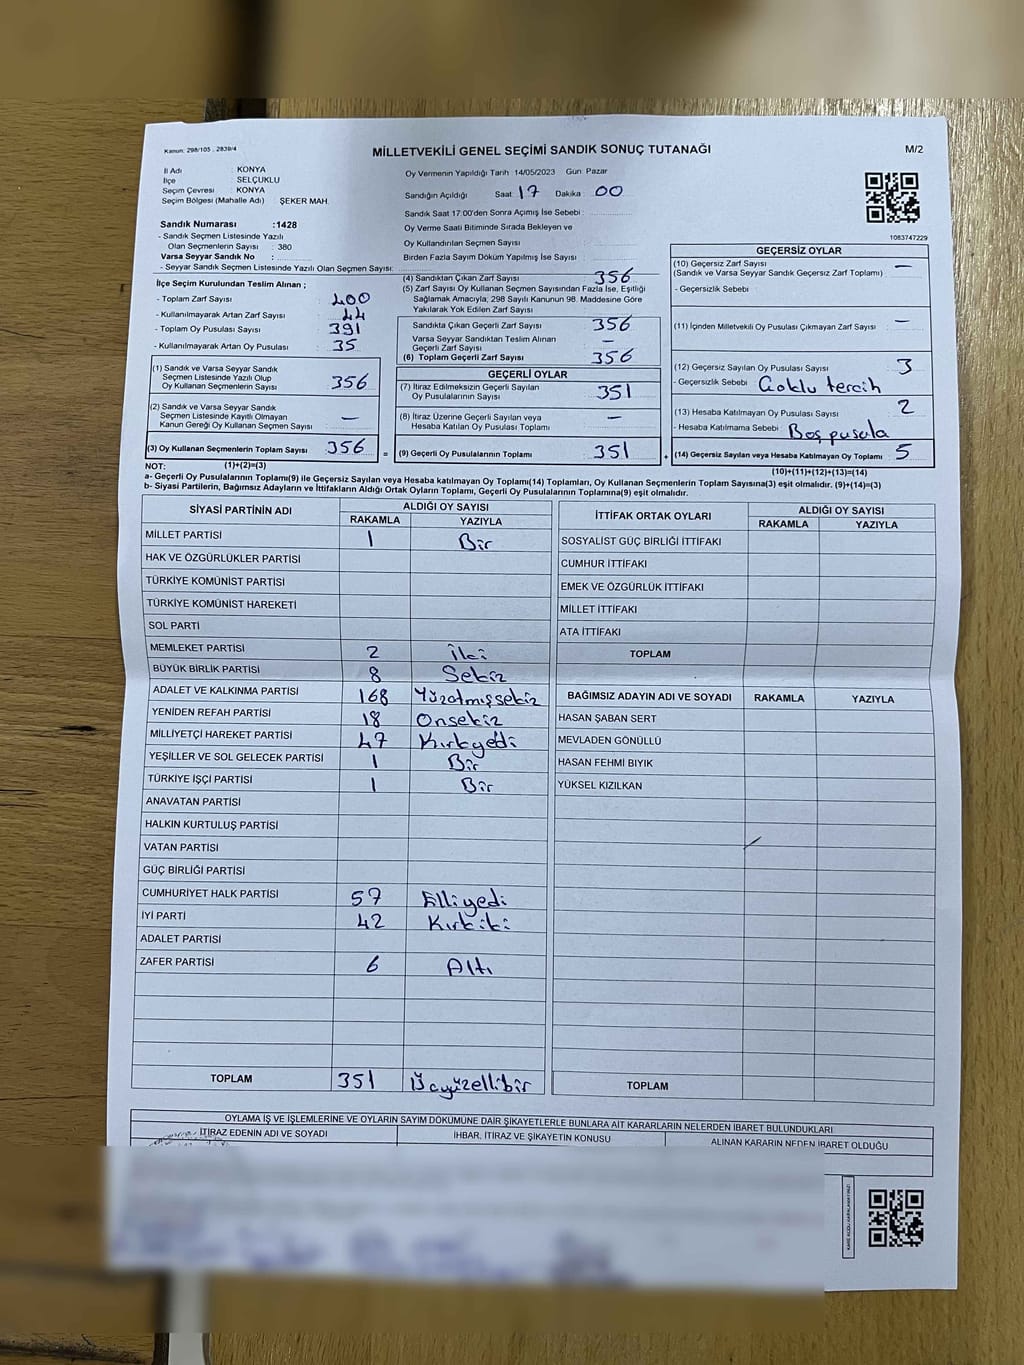 Kanun: 298/105 , 2839/4
MİLLETVEKİLİ GENEL SEÇİMİ SANDIK SONUÇ TUTANAĞI
M/2
İl Adı : KONYA
İlçe : SELÇUKLU
Seçim Çevresi : KONYA
Seçim Bölgesi (Mahalle Adı) ŞEKER MAH.
Oy Vermenin Yapıldığı Tarih 14/05/2023 Gün: Pazar
Sandığın Açıldığı Saat: 17 Dakika : 00
Sandık Saat 17:00'den Sonra Açımış İse Sebebi :
Oy Verme Saati Bitiminde Sırada Bekleyen ve
Oy Kullandırılan Seçmen Sayısı
Birden Fazla Sayım Döküm Yapılmış İse Sayısı :
1083747229
Sandık Numarası :1428
- Sandık Seçmen Listesinde Yazılı
Olan Seçmenlerin Sayısı : 380
Varsa Seyyar Sandık No :
- Seyyar Sandık Seçmen Listesinde Yazılı Olan Seçmen Sayısı:
İlçe Seçim Kurulundan Teslim Alınan ;
- Toplam Zarf Sayısı : 400
- Kullanılmayarak Artan Zarf Sayısı : 44
- Toplam Oy Pusulası Sayısı : 391
- Kullanılmayarak Artan Oy Pusulası : 35
(1) Sandık ve Varsa Seyyar Sandık
Seçmen Listesinde Yazılı Olup
Oy Kullanan Seçmenlerin Sayısı : 356
(2) Sandık ve Varsa Seyyar Sandık
Seçmen Listesinde Kayıtlı Olmayan
Kanun Gereği Oy Kullanan Seçmen Sayısı : —
(3) Oy Kullanan Seçmenlerin Toplam Sayısı : 356 =
(4) Sandıktan Çıkan Zarf Sayısı 356
(5) Zarf Sayısı Oy Kullanan Seçmen Sayısından Fazla İse, Eşitliği
Sağlamak Amacıyla, 298 Sayılı Kanunun 98. Maddesine Göre
Yakılarak Yok Edilen Zarf Sayısı
Sandıkta Çıkan Geçerli Zarf Sayısı 356
Varsa Seyyar Sandıktan Teslim Alınan
Geçerli Zarf Sayısı —
(6) Toplam Geçerli Zarf Sayısı 356
GEÇERLİ OYLAR
(7) İtiraz Edilmeksizin Geçerli Sayılan
Oy Pusulalarının Sayısı : 351
(8) İtiraz Üzerine Geçerli Sayılan veya
Hesaba Katılan Oy Pusulası Toplamı : —
(9) Geçerli Oy Pusulalarının Toplamı : 351
GEÇERSİZ OYLAR
(10) Geçersiz Zarf Sayısı —
(Sandık ve Varsa Seyyar Sandık Geçersiz Zarf Toplamı)
- Geçersizlik Sebebi :
(11) İçinden Milletvekili Oy Pusulası Çıkmayan Zarf Sayısı : —
(12) Geçersiz Sayılan Oy Pusulası Sayısı : 3
- Geçersizlik Sebebi : Çoklu tercih
(13) Hesaba Katılmayan Oy Pusulası Sayısı : 2
- Hesaba Katılmama Sebebi : Boş pusula
(14) Geçersiz Sayılan veya Hesaba Katılmayan Oy Toplamı 5
NOT: (1)+(2)=(3)
(10)+(11)+(12)+(13)=(14)
a- Geçerli Oy Pusulalarının Toplamı(9) ile Geçersiz Sayılan veya Hesaba katılmayan Oy Toplamı(14) Toplamları, Oy Kullanan Seçmenlerin Toplam Sayısına(3) eşit olmalıdır. (9)+(14)=(3)
b- Siyasi Partilerin, Bağımsız Adayların ve İttifakların Aldığı Ortak Oyların Toplamı, Geçerli Oy Pusulalarının Toplamına(9) eşit olmalıdır.
SİYASİ PARTİNİN ADI ALDIĞI OY SAYISI
RAKAMLA YAZIYLA
MİLLET PARTİSİ 1 Bir
HAK VE ÖZGÜRLÜKLER PARTİSİ
TÜRKİYE KOMÜNİST PARTİSİ
TÜRKİYE KOMÜNİST HAREKETİ
SOL PARTİ
MEMLEKET PARTİSİ 2 İki
BÜYÜK BİRLİK PARTİSİ 8 Sekiz
ADALET VE KALKINMA PARTİSİ 168 Yüzatmışsekiz
YENİDEN REFAH PARTİSİ 18 Onsekiz
MİLLİYETÇİ HAREKET PARTİSİ 47 Kırkyedi
YEŞİLLER VE SOL GELECEK PARTİSİ 1 Bir
TÜRKİYE İŞÇİ PARTİSİ 1 Bir
ANAVATAN PARTİSİ
HALKIN KURTULUŞ PARTİSİ
VATAN PARTİSİ
GÜÇ BİRLİĞİ PARTİSİ
CUMHURİYET HALK PARTİSİ 57 Elliyedi
İYİ PARTİ 42 Kırkiki
ADALET PARTİSİ
ZAFER PARTİSİ 6 Altı
TOPLAM 351 Üçyüzellibir
İTTİFAK ORTAK OYLARI ALDIĞI OY SAYISI
RAKAMLA YAZIYLA
SOSYALİST GÜÇ BİRLİĞİ İTTİFAKI
CUMHUR İTTİFAKI
EMEK VE ÖZGÜRLÜK İTTİFAKI
MİLLET İTTİFAKI
ATA İTTİFAKI
TOPLAM
BAĞIMSIZ ADAYIN ADI VE SOYADI RAKAMLA YAZIYLA
HASAN ŞABAN SERT
MEVLADEN GÖNÜLLÜ
HASAN FEHMİ BIYIK
YÜKSEL KIZILKAN
TOPLAM
OYLAMA İŞ VE İŞLEMLERİNE VE OYLARIN SAYIM DÖKÜMÜNE DAİR ŞİKAYETLERLE BUNLARA AİT KARARLARIN NELERDEN İBARET BULUNDUKLARI
İTİRAZ EDENİN ADI VE SOYADI İHBAR, İTİRAZ VE ŞİKAYETİN KONUSU ALINAN KARARIN NEDEN İBARET OLDUĞU